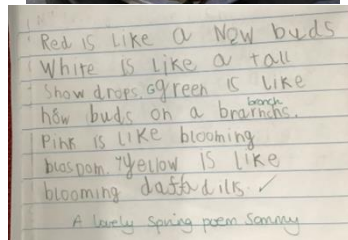 Red is like a New buds
White is like a tall
Show drops. Ggreen is like
how buds on a brarnchs.
branch
Pink is like blooming
blospom. Yyellow is like
blooming daffadills ✓
A lovely spring poem Sammy